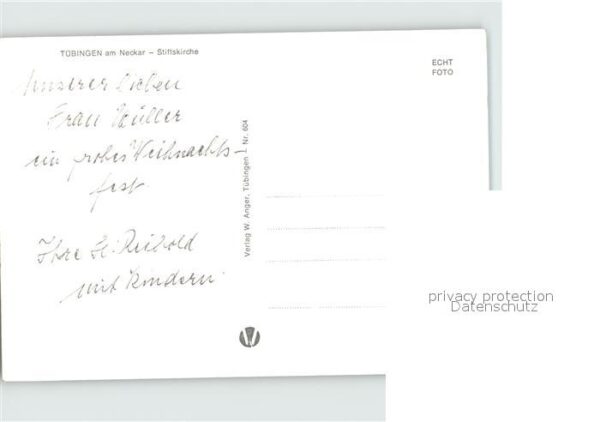 TÜBINGEN am Neckar – Stiftskirche
ECHT
FOTO
Unserer lieben
Frau Müller
ein frohes Weihnachts-
fest.
Ihre
mit Kindern
Verlag W. Anger, Tübingen Nr. 604
privacy protection
Datenschutz